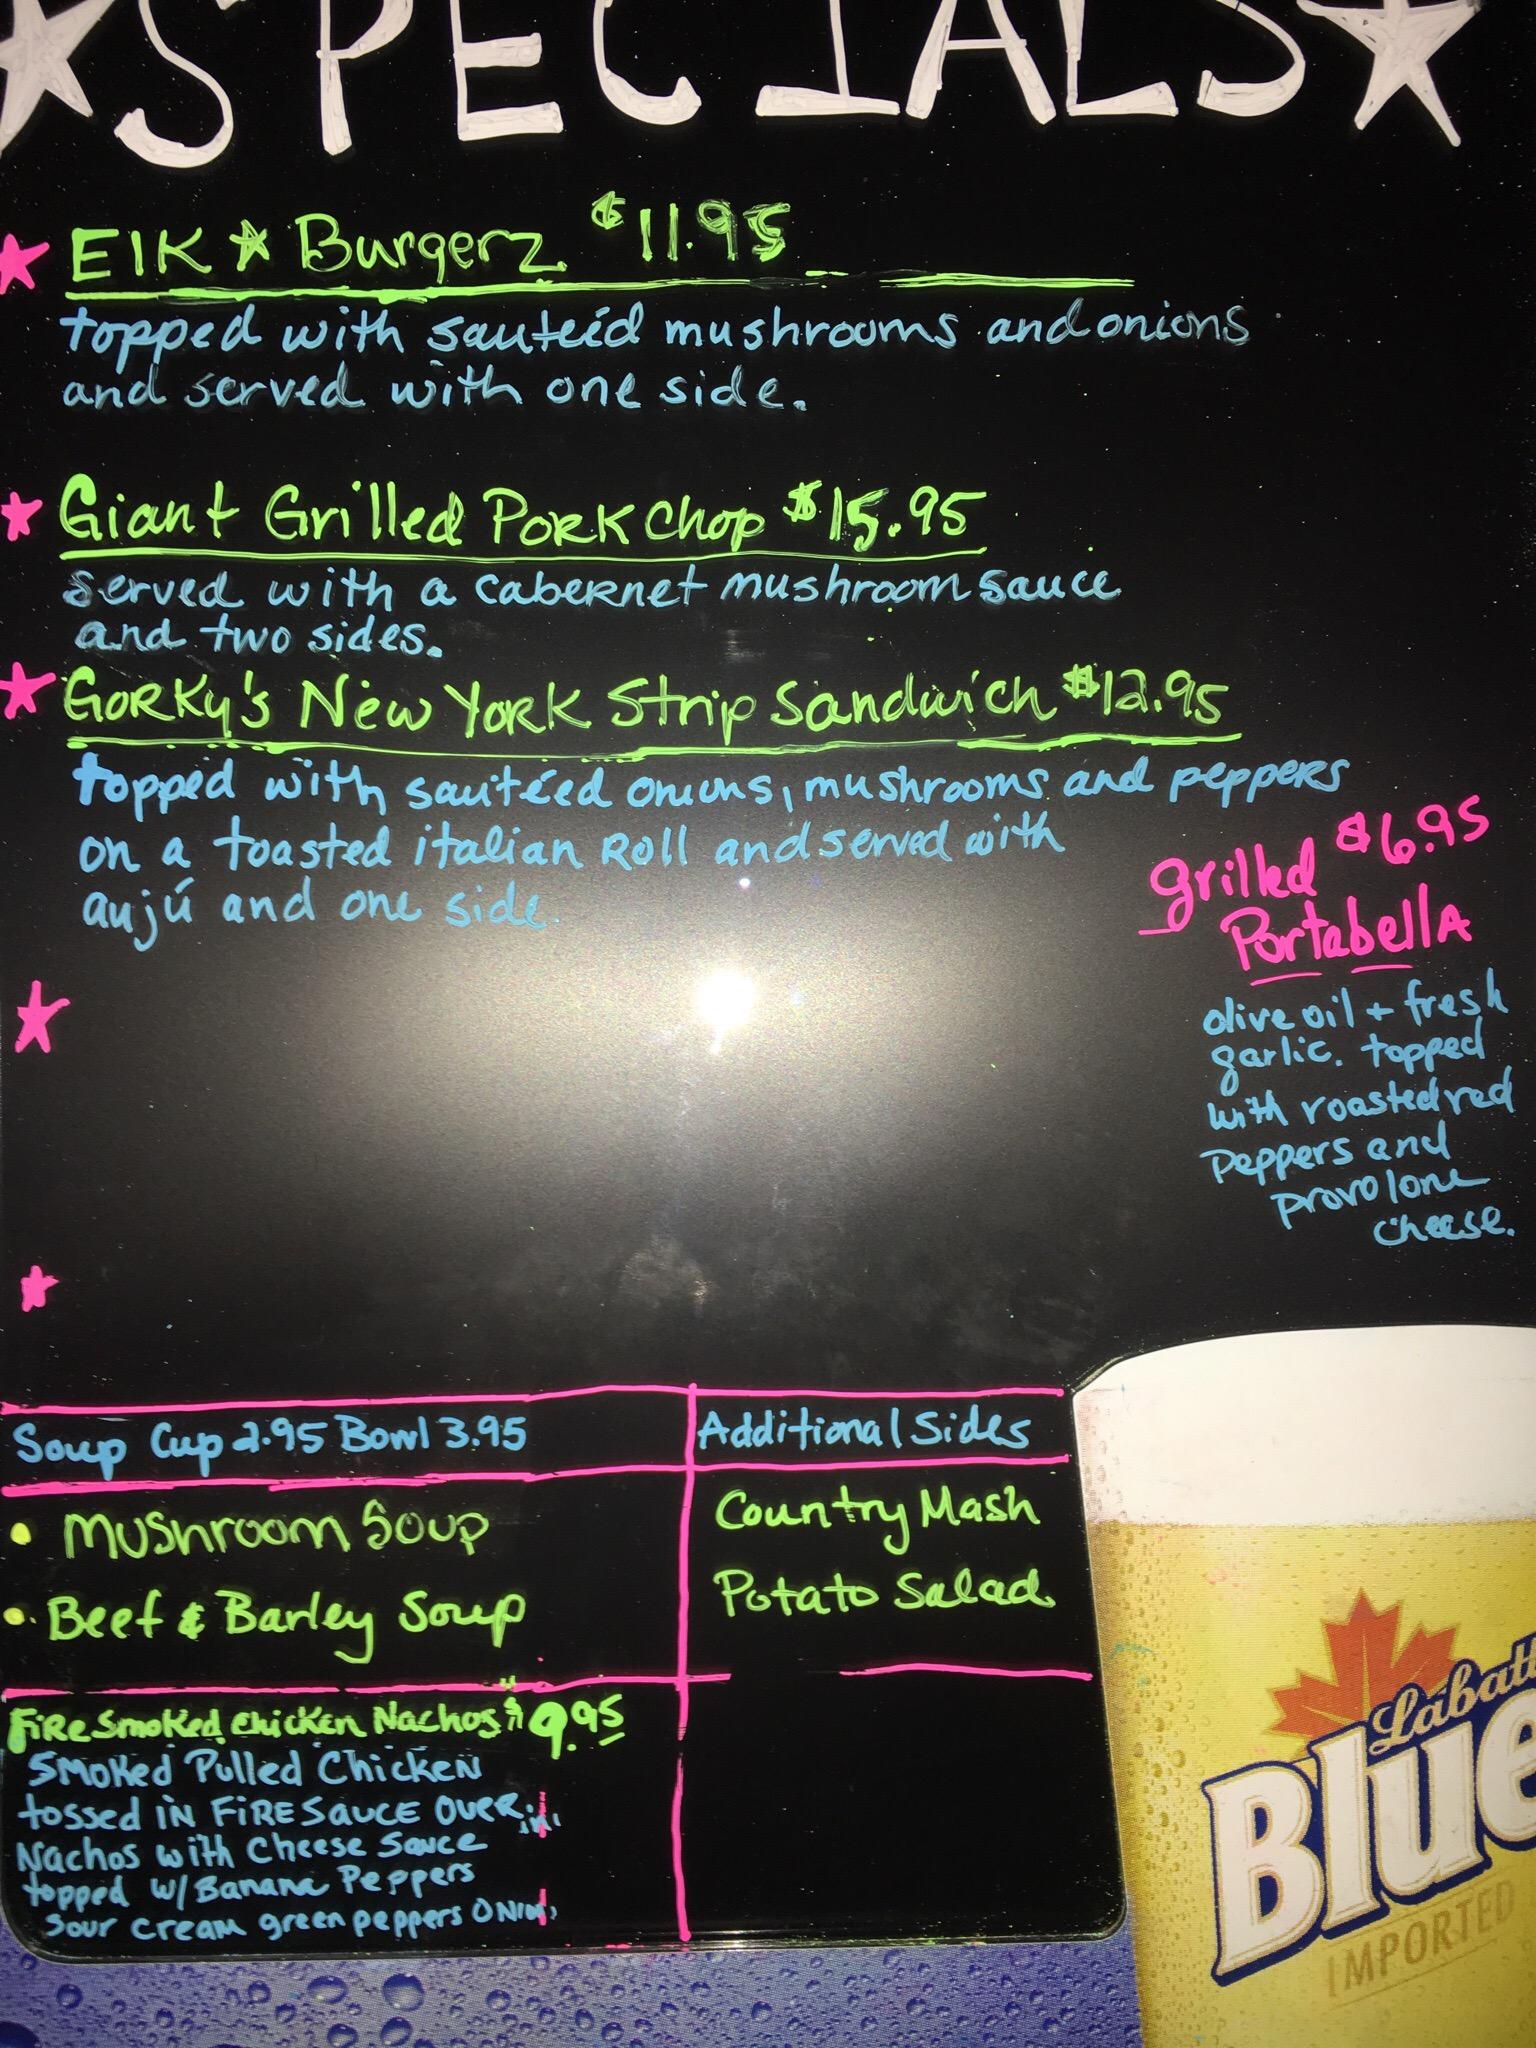 SPECIALS
Elk Burgerz $11.95
topped with sauteéd mushrooms and onions
and served with one side.
Giant Grilled Pork Chop $15.95
served with a cabernet mushroom sauce
and two sides.
Gorky's New York Strip Sandwich $12.95
topped with sauteéd onions, mushrooms and peppers
on a toasted italian Roll and served with
aujú and one side.
grilled $6.95
Portabella
olive oil + fresh
garlic. topped
with roasted red
peppers and
provolone
cheese.
Soup Cup 2.95 Bowl 3.95
Mushroom Soup
Beef & Barley Soup
Additional Sides
Country Mash
Potato Salad
Fire Smoked Chicken Nachos $9.95
Smoked Pulled Chicken
tossed in Fire Sauce Over
Nachos with Cheese Sauce
topped w/ Banana Peppers
Sour cream green peppers
Labatt
Blue
IMPORTED